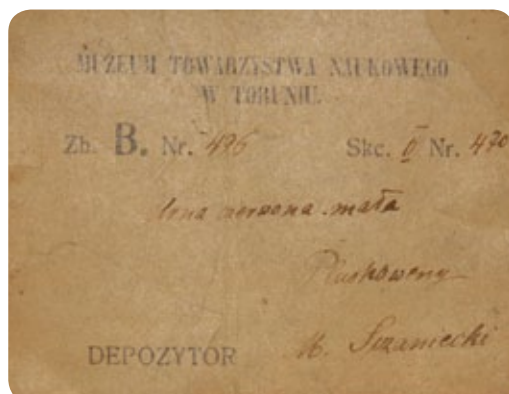 MUZEUM TOWARZYSTWA NAUKOWEGO
W TORUNIU.
Zb. B. Nr. 496 Skc. II Nr. 470
Urna czerwona mała
Pluskowęsy
DEPOZYTOR M. Sczaniecki